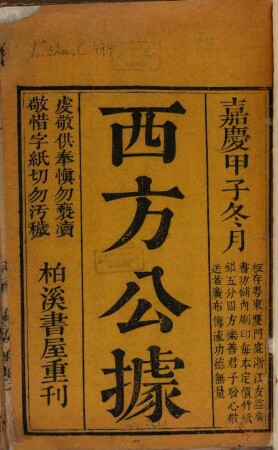 L. sin. C 494
嘉慶甲子冬月
板存粵東雙門底浙江友益齋
書坊舖內刷印每本定價竹紙
銀五分四方樂善君子發心敬
送者廣布傳流功德無量
西方公據
虔敬供奉慎勿褻瀆
敬惜字紙切勿汚穢
柏溪書屋重刊